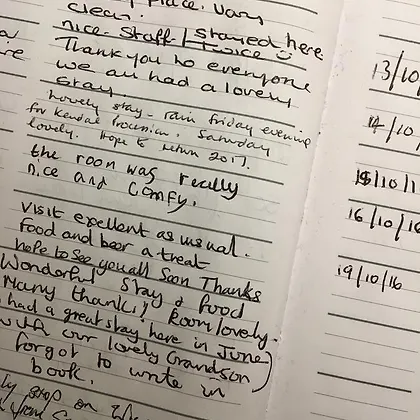 place. Very
clean.
nice. Staff / stayed here
twice
Thank you to everyone
we all had a lovely
stay.
Lovely stay - rain friday evening
for Kendal Procession. Saturday
lovely. Hope to return 2017.
the room was really
nice and comfy.
Visit excellent as usual.
Food and beer a treat
hope to see you all soon Thanks
Wonderful stay & food
Many thanks, Room lovely.
had a great stay here in June
with our lovely Grandson
forgot to write in
book.
stop on
13/10
14/10
15/10/1
16/10/16
19/10/16